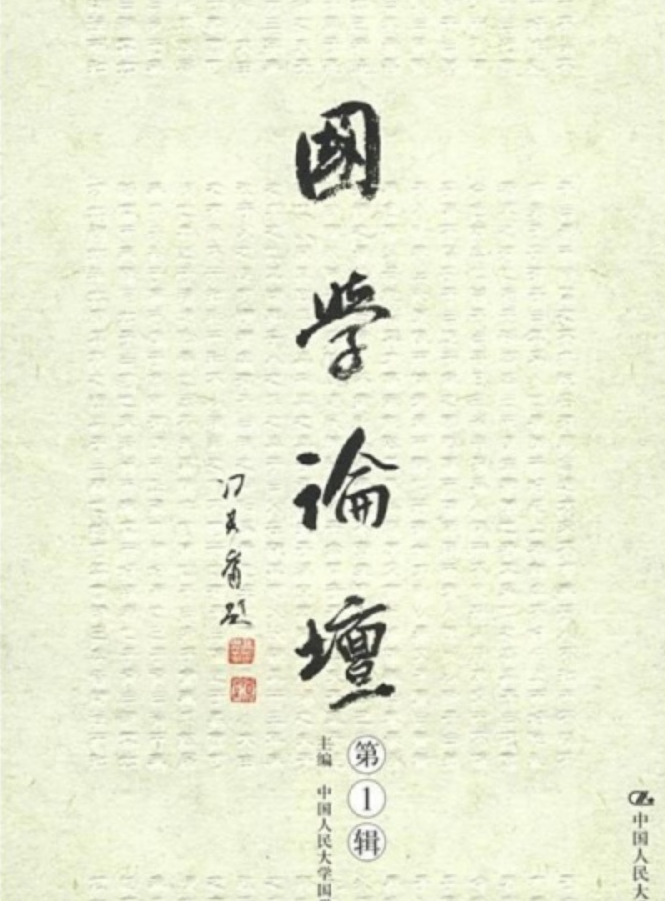 國學論壇
冯其庸题
第1辑
主编 中国人民大学国
中国人民大